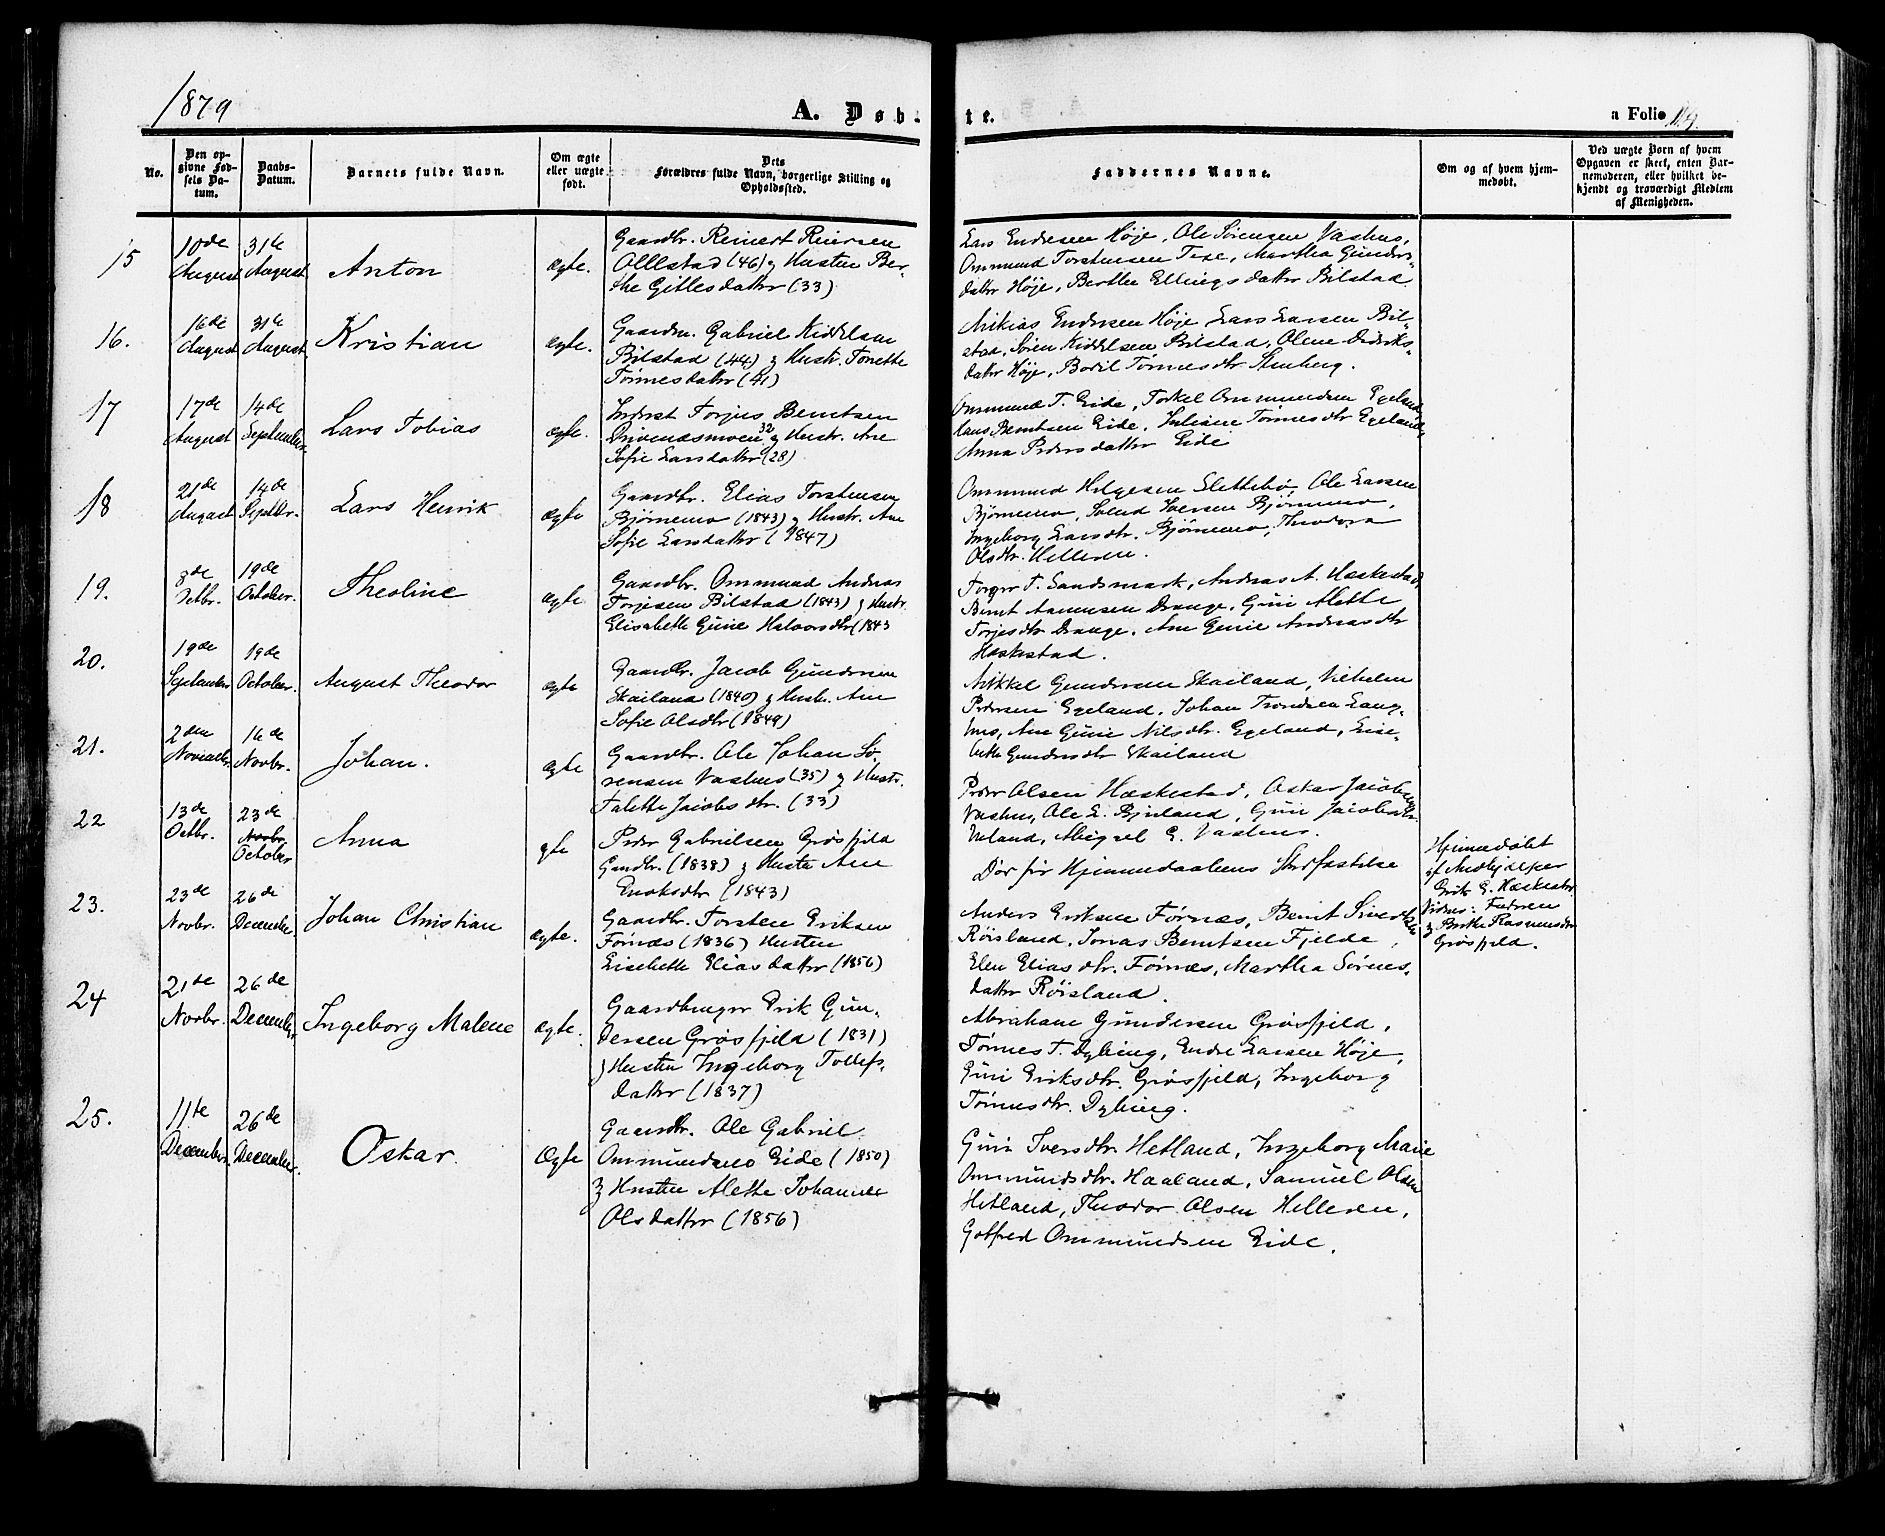 1879
A. Døb-
te.
a Folio 119.
No.
Den op-
givne Fød-
sels Da-
tum.
Daabs-
Datum.
Barnets fulde Navn.
Om ægte
eller uægte
født.
Dets
Forældres fulde Navn, borgerlige Stilling og
Opholdssted.
Faddernes Navne.
Om og af hvem hjem-
medøbt.
Ved uægte Børn af hvem
Opgaven er skeet, enten Bar-
nemoderen, eller hvilket be-
kjendt og troværdigt Medlem
af Menigheden.
15
10de
August
31te
August
Anton
Ægte.
Gaardbr. Reinert Reiersen
Ollestad (46) og Hustru Ber-
the Gitlesdatter (33)
Lars Endresen Høje, Ole Sørensen Vashus,
Ommund Torstensen Texe, Martha Gunders-
datter Høje, Berthe Ellingsdatter Bilstad
16.
16de
August
31te
August
Kristian
Ægte.
Gaardm. Gabriel Kiddelsen
Bilstad (44) og Hustr. Tonette
Tønnesdatter (41)
Mikias Endresen Høje, Lars Larsen Bil-
stad, Søren Kiddelsen Bilstad, Olene Dideriks-
datter Høje, Bodil Tønnesdtr Stenberg.
17
17de
August
14de
September
Lars Tobias
Ægte.
Inderst Torjus Berntsen
Drivenæsmoen 32 og Hustr. Ane
Sofie Larsdatter (28)
Ommund T. Eide, Torkel Ommundsen Egeland,
Hans Berntsen Eide, Juliane Tønnesdtr Egeland,
Anna Pedersdatter Eide
18
21de
August
14de
Septbr.
Lars Henrik
Ægte
Gaardbr. Elias Torstensen
Bjørnemo (1843) og Hustr. Ane
Sofie Larsdatter (1847)
Ommund Helgesen Slettebø, Ole Larsen
Bjørnemo, Svend Iversen Bjørnemo,
Ingeborg Larsdtr. Bjørnemo, Theodora
Olsdtr. Helleren.
19.
8de
Octbr.
19de
October.
Theoline
Ægte
Gaardbr. Ommund Andreas
Torjesen Bilstad (1843) og Hustr.
Elisabeth Gurie Halvorsdtr (1843
Torger T. Sandsmark, Andreas A. Hæskestad,
Bernt Aanensen Drange, Guri Alette
Torjesdtr Drange, Ane Gurie Andreasdtr
Hæskestad.
20.
19de
September
19de
October.
August Theodor
Ægte
Gaardbr. Jacob Gundersen
Skailand (1840) og Hustr. Ane
Sofie Olsdtr (1849)
Mikkel Gundersen Skailand, Vilhelm
Pedersen Egeland, Johan Trondsen Laug-
hus, Ane Gurie Nilsdtr. Egeland, Lise-
bethe Gundersdtr Skailand
21.
2den
Novembr.
16de
Novbr.
Johan.
Ægte
Gaardbr. Ole Johan Sø-
rensen Vashus (35) og Hustr.
Talette Jacobsdtr. (33)
Peder Olsen Hæskestad, Oskar Jacobsen
Vashus, Ole L. Bjuland, Guri Jacobsdtr.
Ueland, Abigael E. Vashus.
22
13de
Octbr.
23de
Novbr
October
Anna
gte
Peder Gabrielsen Grøsfjeld
Gaardbr. (1838) og Hustr Ane
Enoksdtr (1843)
Dør før Hjemmedaabens Stadfæstelse
Hjemmedøbt
af Medhjælper
Erik G. Hæskestad
Vidner: Faderen
og Berthe Rasmusdtr
Grøsfjeld.
23.
23de
Novbr.
26de
December
Johan Christian
Ægte.
Gaardbr. Torsten Eriksen
Førnæs (1836) Hustru
Lisebeth Eliasdatter (1856)
Anders Eriksen Førnæs, Bernt Sivertsen
Røisland, Jonas Berntsen Fjelde,
Elen Eliasdtr. Førnæs, Martha Sørens-
datter Røisland.
24
21de
Novbr.
26de
December
Ingeborg Malene
Ægte.
Gaardbruger Erik Gun-
dersen Grøsfjeld (1831)
og Hustru Ingeborg Tollefs-
datter (1837)
Abraham Gundersen Grøsfjeld,
Tønnes T. Dybing, Endre Larsen Høje,
Guri Eriksdtr. Grøsfjeld, Ingeborg
Tønnesdtr. Dybing.
25.
11te
December.
26de
December.
Oskar.
Ægte
Gaardbr. Ole Gabriel
Ommundsen Eide (1850)
og Hustru Alette Johanne
Olsdatter (1856)
Guri Iversdtr Hetland, Ingeborg Marie
Ommundsdtr. Haaland, Samuel Olsen
Hetland, Theodor Olsen Helleren,
Gotfred Ommundsen Eide.